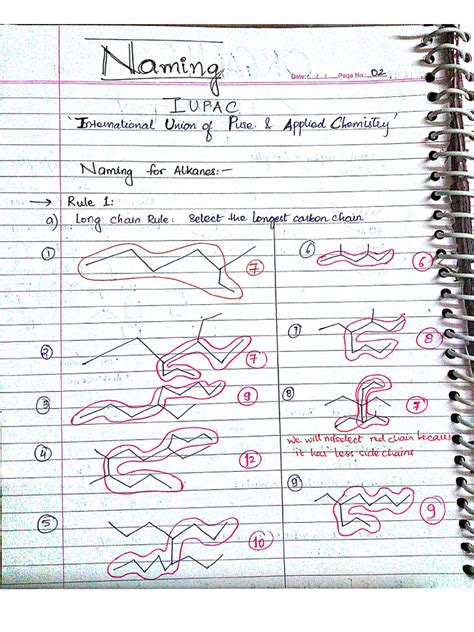 Naming
Date: / / Page No.: 02
IUPAC
'International Union of Pure & Applied Chemistry'
Naming for Alkanes:-
→ Rule 1:
a) Long chain Rule: Select the longest carbon chain
① 7
② 7
③ 9
④ 12
⑤ 10
⑥ 6
⑦ 8
⑧ 7
we will not select red chain because
it has less side chains
⑨ 9